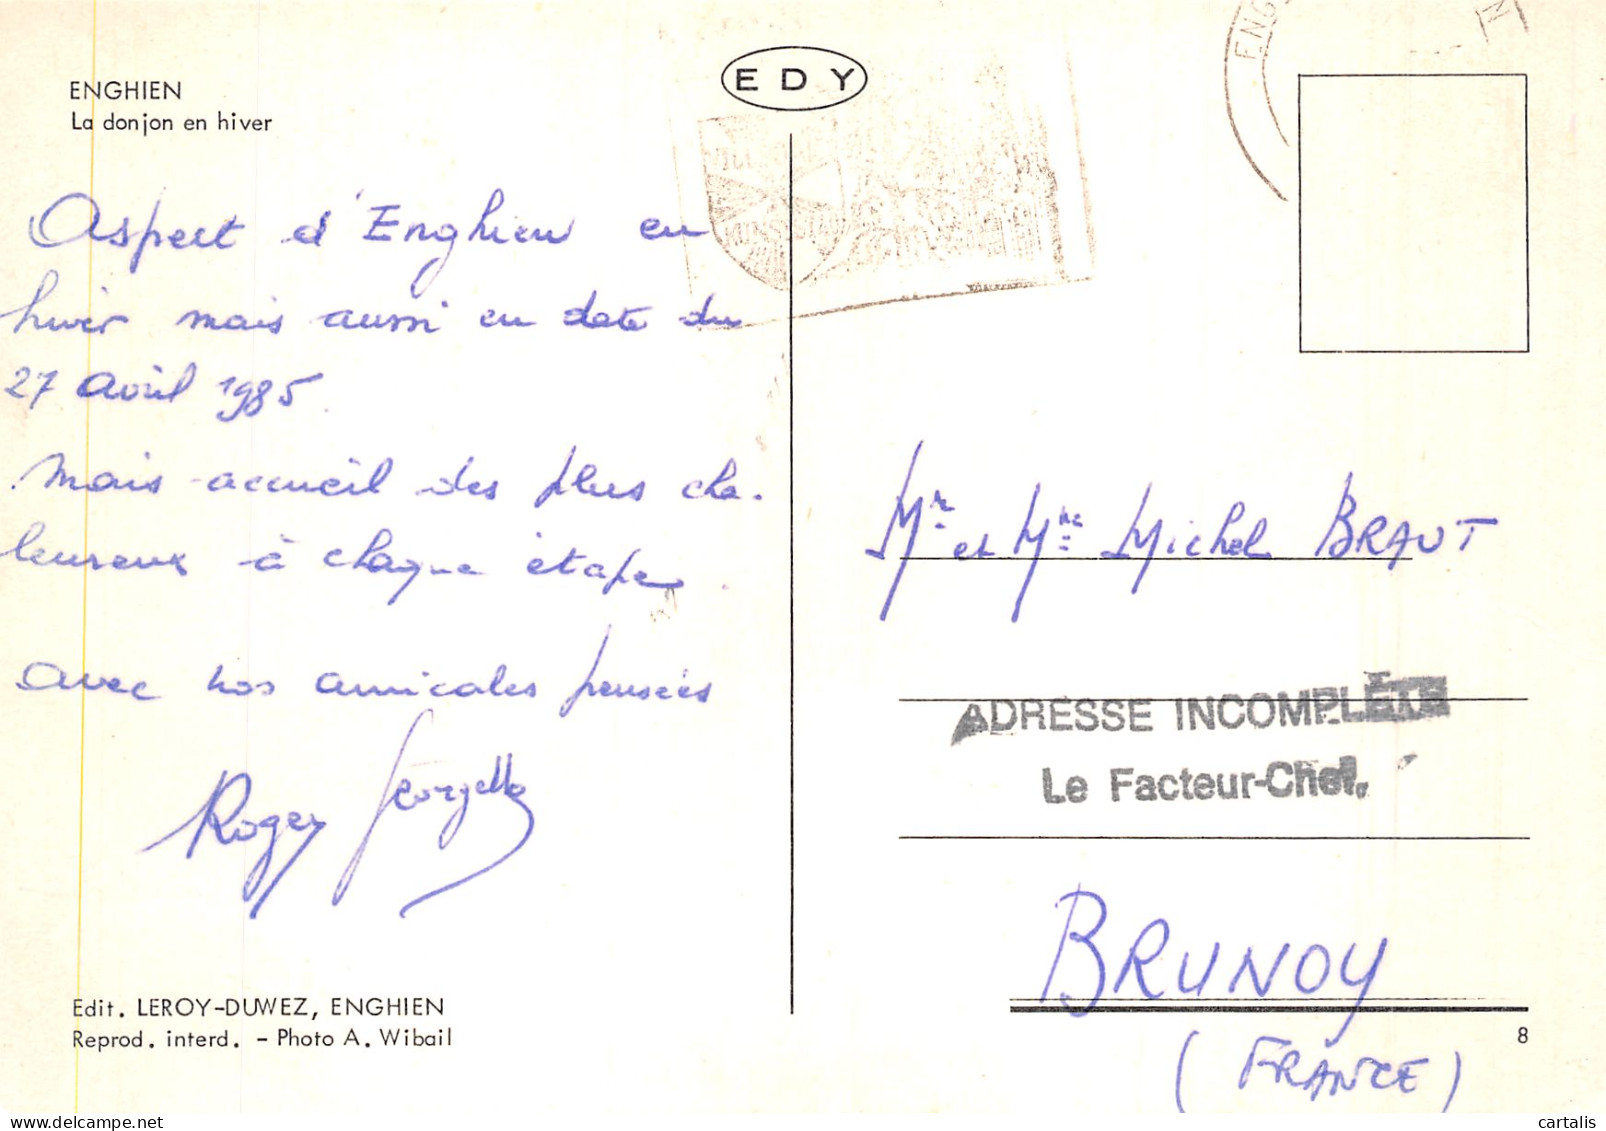 ENGHIEN
La donjon en hiver
EDY
ENG
Aspect d'Enghien en
hiver mais aussi en date du
27 avril 1985.
Mais accueil des plus cha-
leureux à chaque étape
avec nos amicales pensées
Roger Georgette
Edit. LEROY-DUWEZ, ENGHIEN
Reprod. interd. - Photo A. Wibail
KUNSTSTAD
Mr et Mme Michel BRAUT
ADRESSE INCOMPLÈTE
Le Facteur-Chef.
BRUNOY
(FRANCE)
8
cartalis